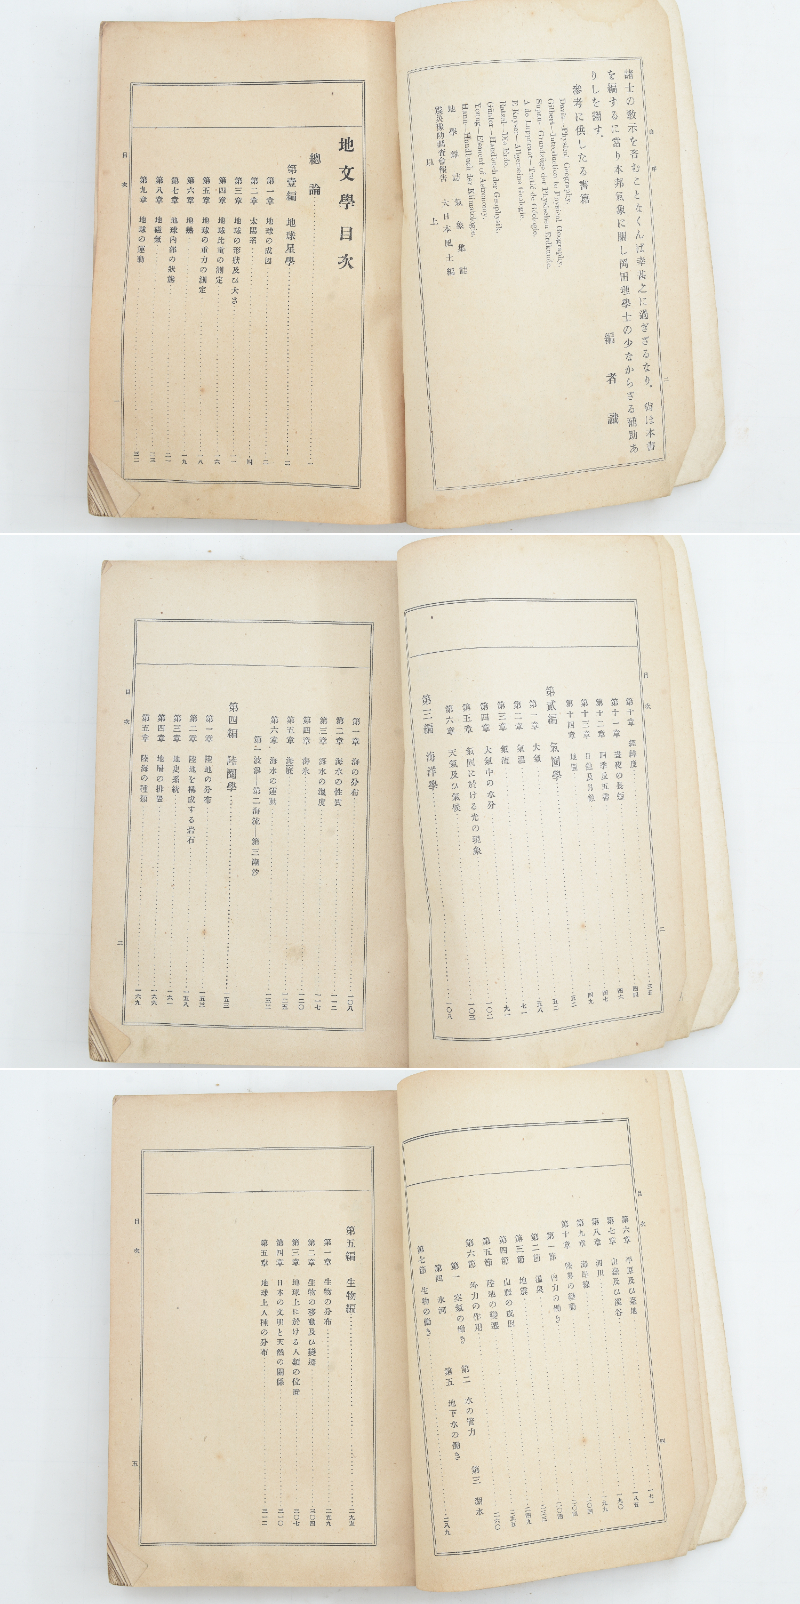 諸士の敎示を吝むことなくんば幸甚之に過ぎざるなり、尙ほ本書
を編するに當り本邦氣象に關し岡田理學士の少なからざる補助あ
りしを謝す、
編者識
參考に供したる書籍
Davis—Physical Geography.
Gilbert—Introduction to Physical Geography.
Supan—Grundzüge der Physischen Erdkunde.
A de Lapparent—Traité de Géologie.
E Kayser—Allgemeine Geologie.
Ratzel—Die Erde.
Günther—Handbuch der Geophysik.
Young—Element of Astronomy.
Hann—Handbuch der Klimatologie.
地學雜誌 氣象集誌
震災豫防調査會報告 大日本風土編
以上
地文學目次
總論
第壹編 地球星學
第一章 地球の成因
第二章 太陽系
第三章 地球の形狀及び大さ
第四章 地球比重の測定
第五章 地球の重力の測定
第六章 地熱
第七章 地球內部の狀態
第八章 地磁氣
第九章 地球の運動
目次
第十章 經緯度
第十一章 晝夜の長短
第十二章 四季及五帶
第十三章 日蝕及月蝕
第十四章 地圖
第貳編 氣圈學
第一章 大氣
第二章 氣溫
第三章 氣流
第四章 大氣中の水分
第五章 氣圈に於ける光の現象
第六章 天氣及び氣候
第三編 海洋學
第一章 海の分布
第二章 海水の性質
第三章 海水の溫度
第四章 海氷
第五章 海底
第六章 海水の運動
第一波浪—第二海流—第三潮汐
第四編 陸圈學
第一章 陸地の分布
第二章 陸地を構成する岩石
第三章 地史系統
第四章 地層の排置
第五章 陸海の種類
目次
第六章 平原及び高原
第七章 山岳及び溪谷
第八章 河川
第九章 海岸線
第十章 陸界の變動
第一節 內力の働き
第二節 溫泉
第三節 地震
第四節 山岳の成因
第五節 陸地の變遷
第六節 外力の作用
第一 空氣の働き 第二 水の營力 第三 湖水
第四 氷河 第五 地下水の働き
第七節 生物の働き
第五編 生物編
第一章 生物の分布
第二章 生物の移動及び變遷
第三章 地球上に於ける人類の位置
第四章 日本の文明と天然の關係
第五章 地球上人種の分布
目次
五